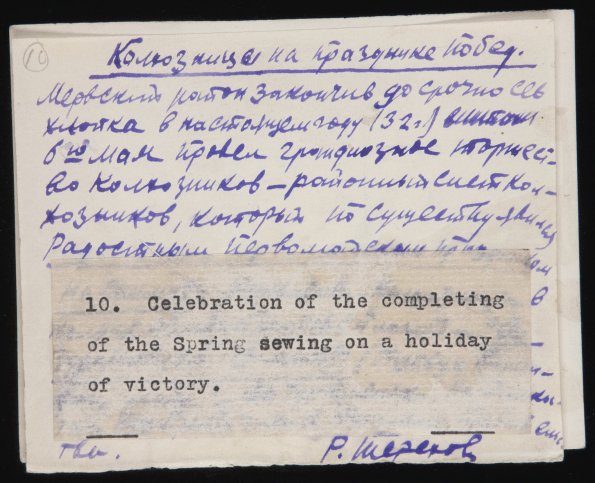 10
Колхозницы на празднике побед.
Мервский район закончив до срочно сев
хлопка в настоящем году (32 г.)
6го мая провел грандиозное торжест-
во колхозников — районный слет кол-
хозников, который по существу явился
Радостным Первомайским
10. Celebration of the completing
of the Spring sewing on a holiday
of victory.
тва.
Р. Шерехов